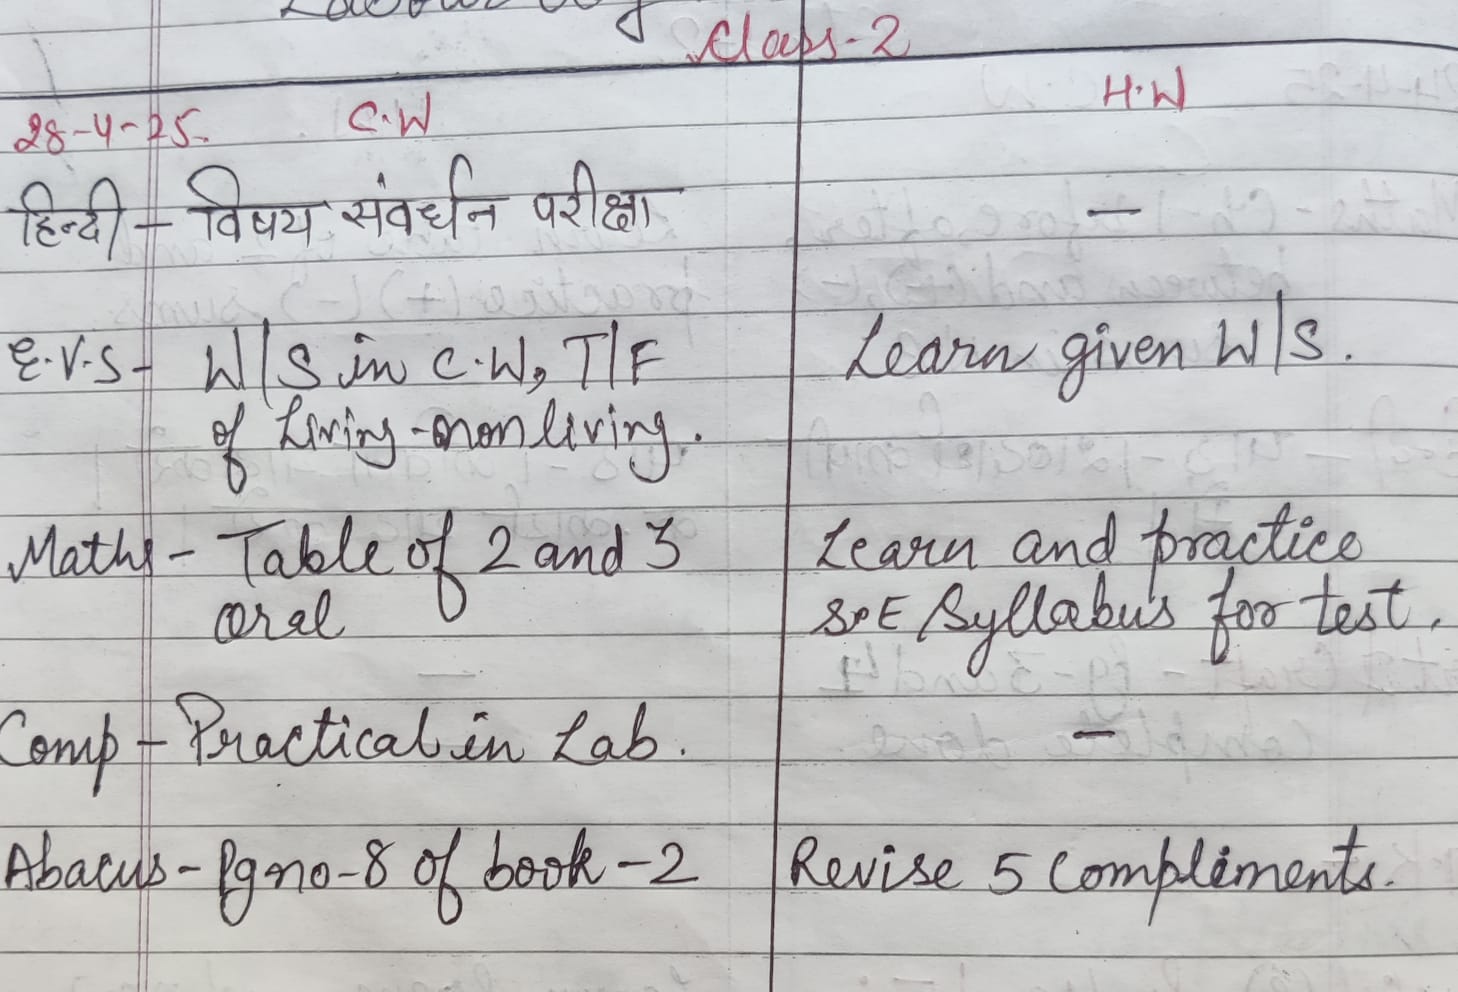 Class-2
28-4-25. C.W H.W
हिन्दी - विषय संवर्धन परीक्षा —
E.V.S- W/S in C.W, T/F Learn given W/S.
of Living-nonliving.
Maths - Table of 2 and 3 Learn and practice
oral S.E Syllabus for test.
Comp - Practical in Lab. —
Abacus - Pg no-8 of book-2 Revise 5 Compliments.